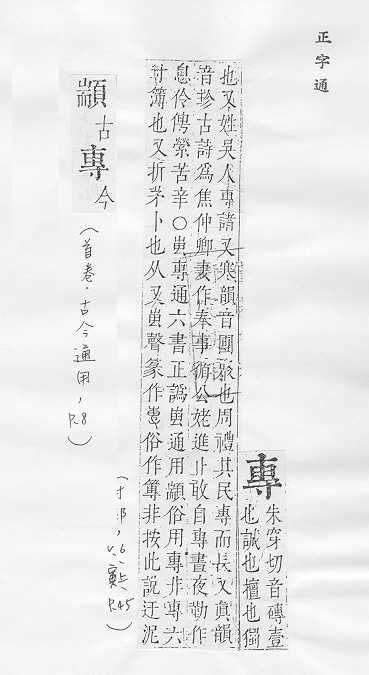 正字通
專 朱穿切音磚壹
也誠也擅也獨
也又姓吳人專諸又寒韻音團聚也周禮其民專而長又眞韻
音珍古詩爲焦仲卿妻作奉事循公姥進止敢自專晝夜勤作
息伶俜縈苦辛○叀專通六書正譌叀通用顓俗用專非專六
寸簿也又折茅卜也从又叀聲篆作叀俗作篿非按此說迂泥
(寸部, v.6, 寅上 p.45)
顓古專今
(首卷.古今通用, p.8)